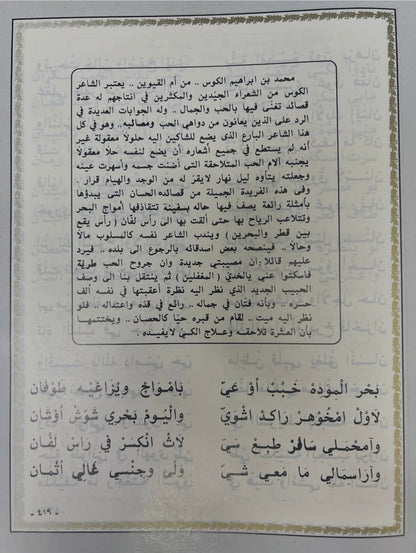 محمد بن ابراهيم الكوس .. من أم القيوين .. يعتبر الشاعر
الكوس من الشعراء الجيدين والمكثرين في انتاجهم له عدة
قصائد تغنى فيها بالحب والجمال .. وله الجوابات العديدة في
الرد على الذين يعانون من دواهي الحب ومصائبه .. وهو في كل
هذا الشاعر البارع الذي يضع للشاكين اليه حلولاً معقولة غير
أنه لم يستطع في جميع أشعاره أن يضع لنفسه حلاً معقولاً
يجنبه آلام الحب المتلاحقة التى أضنت جسمه وأسهرت عينه
وجعلته يتأوه ليل نهار لايقر له من الوجد والهيام قرار .
وفى هذه الفريدة الجميلة من قصائده الحسان التى يبدؤها
بأمثلة رائعة يصف فيها حاله بسفينة تتقاذفها أمواج البحر
وتتلاعب الرياح بها حتى ألقت بها الى رأس لفان ( رأس يقع
بين قطر والبحرين ) ويندب الشاعر نفسه كالمسلوب مالاً
وحالاً .. فينصحه بعض اصدقائه بالرجوع إلى بلده .. فيرد
عليهم قائلا : ان مصيبتي جديدة وان جروح الحب طرية
فاسكتوا عني يالخدي ( المغفلين ) ثم ينتقل بنا الى وصف
الحبيب الجديد الذي نظر اليه نظرة أعقبتها في نفسه ألف
حسرة .. وبأنه فتان في جماله .. رائع في قده واعتداله .. فلو
نظر اليه ميت .. لقام من قبره حياً كالحصان .. ويختتمها
بأن العشرة تلاحقه وعلاج الكي لايفيده .
بَحْر الْمَوَدِّهْ خَبْبْ أوْ عَيّ بَامْوَاجْ وِيْزَاغِيْهْ طُوْفَانْ
لاوّلْ امْخُوْهِرْ رَاكِدْ اشْوَيّ وِالْيُومْ بَحْرِي شَوْشْ أوْشَانْ
وِآمِحْمَلِي سَافَرْ طِبَعْ سَيّ لاَشْ انْكِسَرْ فِي رَاسْ لَفَّانْ
وِآرَاسْمَالِي مَا مَعِي شَيّ وَلَّى وِجِنْسِي غَالِي أثْمَانْ
- ٤١٩ -